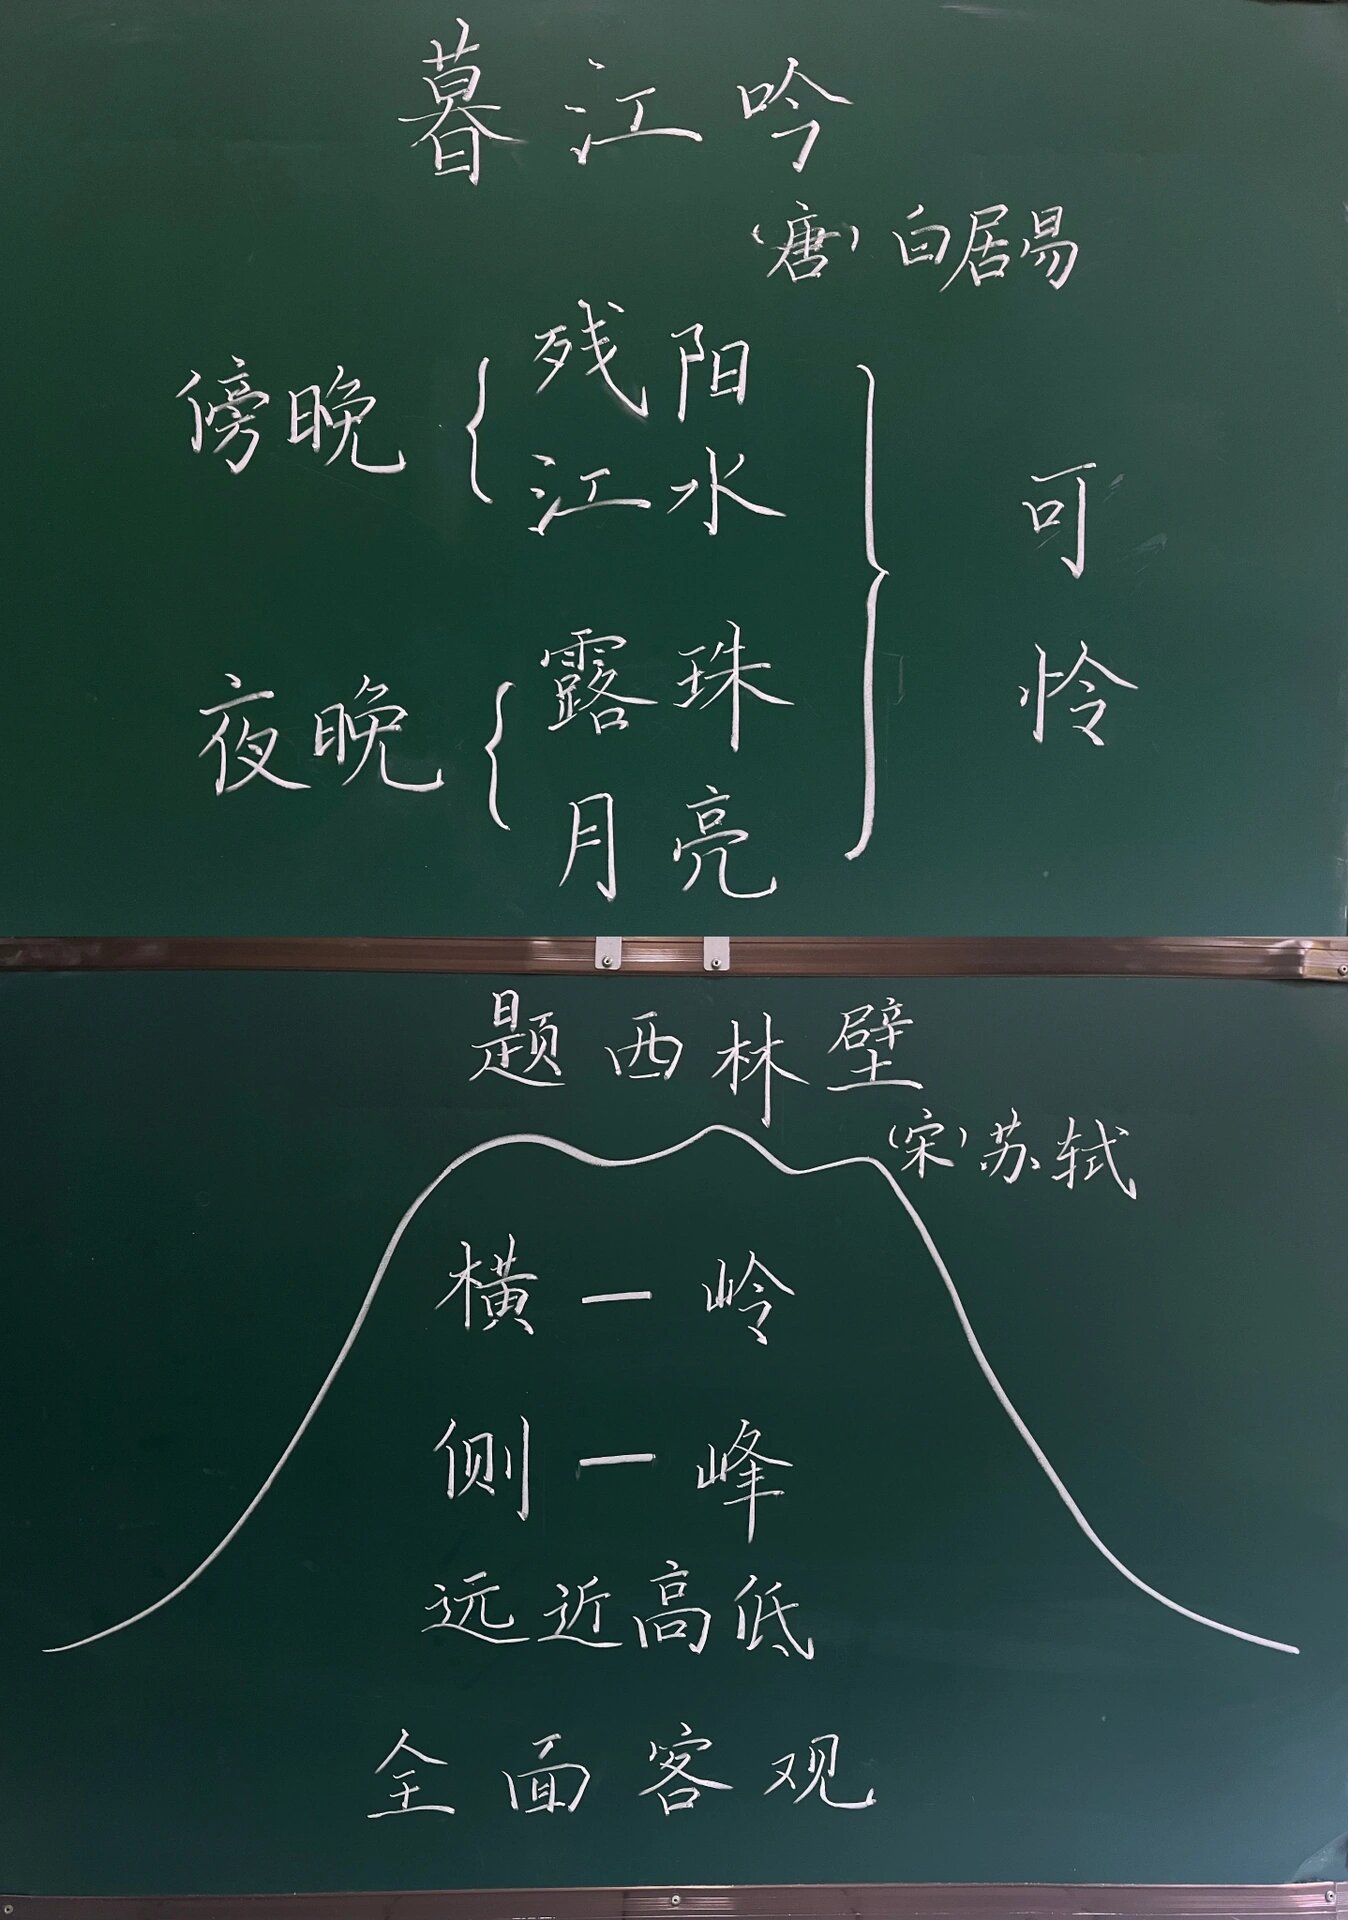 暮江吟
(唐)白居易
傍晚
残阳
江水
夜晚
露珠
月亮
可怜
题西林壁
(宋)苏轼
横—岭
侧—峰
远近高低
全面客观